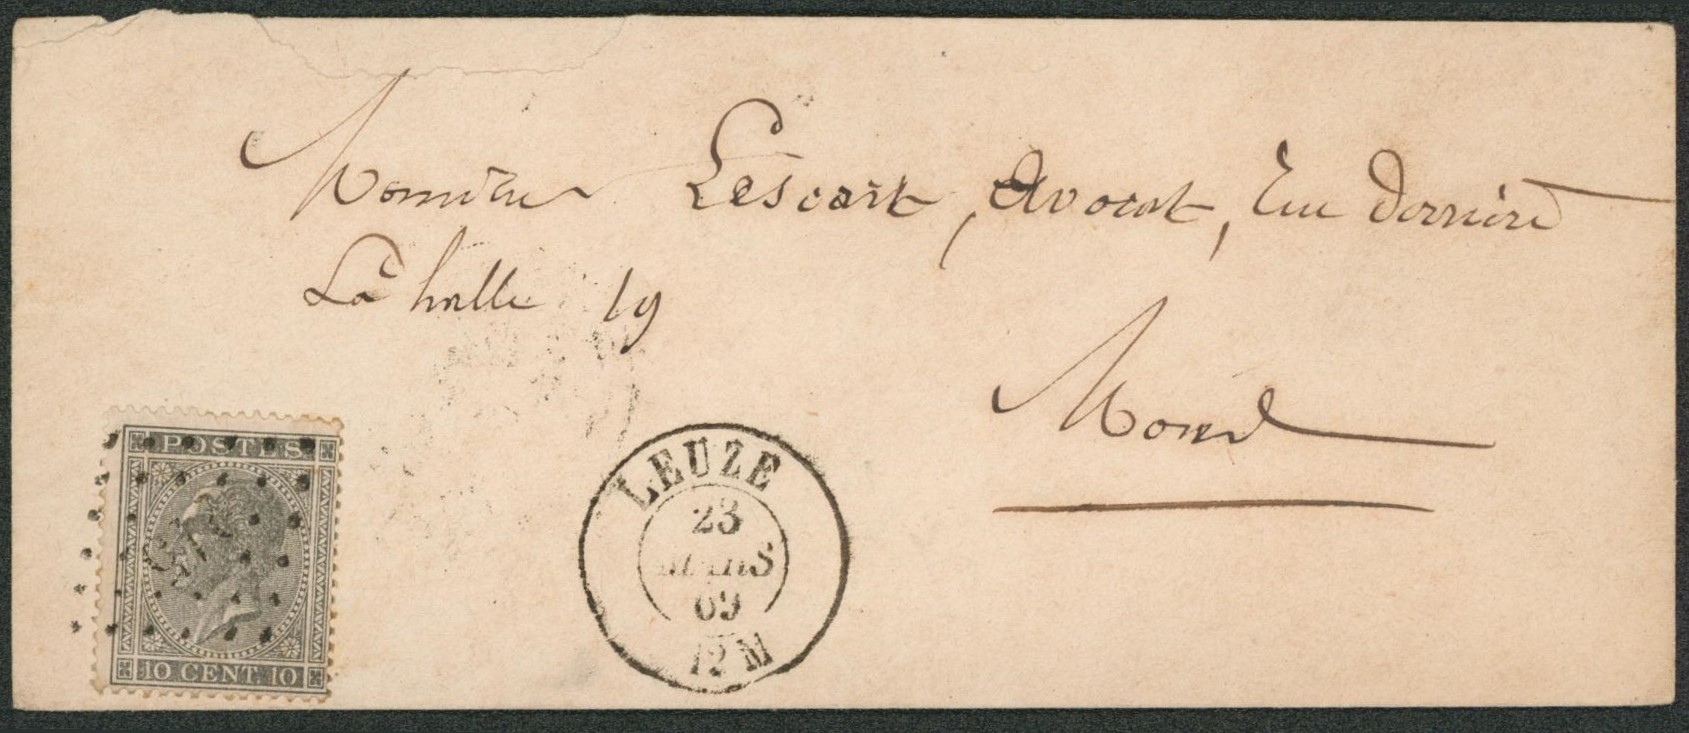 Monsieur Lescart, Avocat, Rue derrière
La halle 19
Mons
POSTES
10 CENT. 10
LEUZE
23
MARS
69
12 M